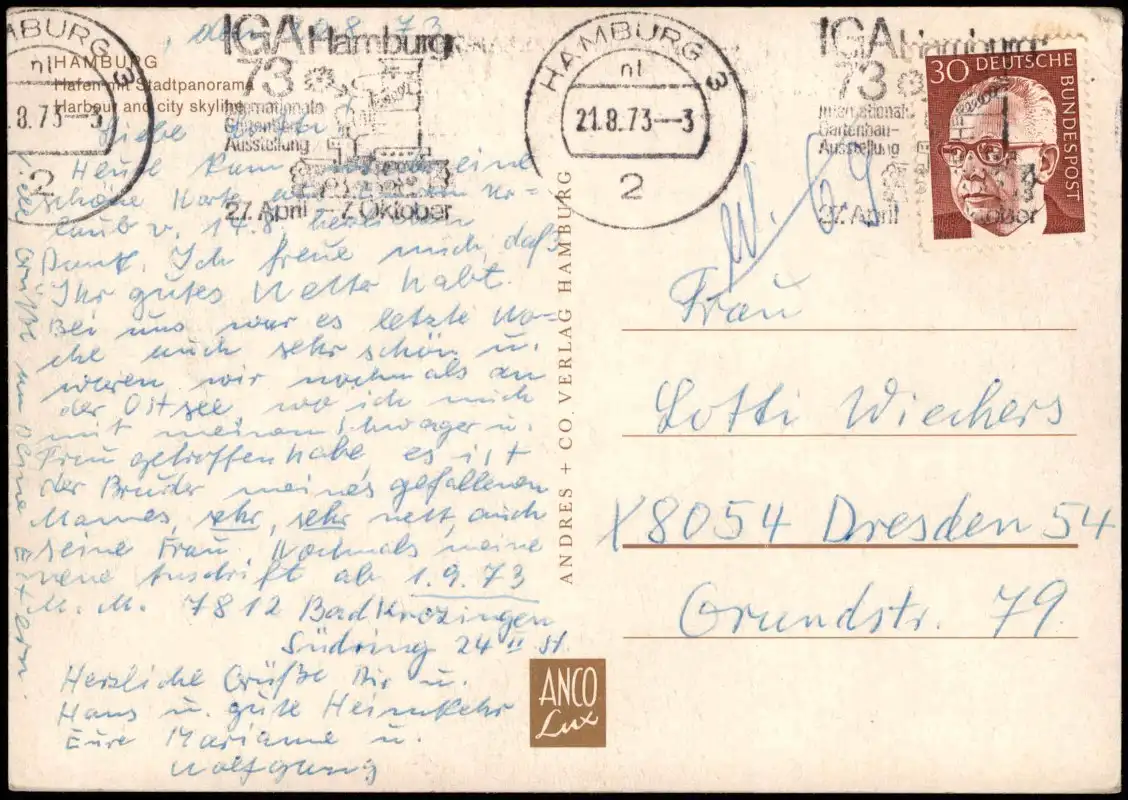 den 20.8.73
HAMBURG
Hafen mit Stadtpanorama
Harbour and city skyline
Liebe
Heute kam eine
schöne Karte aus dem Ur=
laub v. 14.8. herzlichen
Dank. Ich freue mich, daß
Ihr gutes Wetter habt.
Bei uns war es letzte Wo=
che auch sehr schön u.
waren wir nochmals an
der Ostsee, wo ich mich
mit meinem Schwager u.
Frau getroffen habe, es ist
der Bruder meines gefallenen
Mannes, sehr, sehr nett, auch
seine Frau. Nochmals meine
neue Anschrift ab 1.9.73
M. M. 7812 Bad Krozingen
Südring 24 II St.
Herzliche Grüße Dir u.
Hans u. gute Heimkehr
Eure Marianne u.
Wolfgang
Viele Grüße an Deine Eltern.
ANDRES + CO. VERLAG HAMBURG
ANCO
Lux
HAMBURG 3
nl
.8.73--3
2
IGA Hamburg
73
Internationale
Gartenbau-
Ausstellung
27. April - 7. Oktober
HAMBURG 3
nl
21.8.73--3
2
IGA Hamburg
73
Internationale
Gartenbau-
Ausstellung
27. April
Oktober
30 DEUTSCHE
BUNDESPOST
Frau
Lotti Wiechers
X8054 Dresden 54
Grundstr. 79.